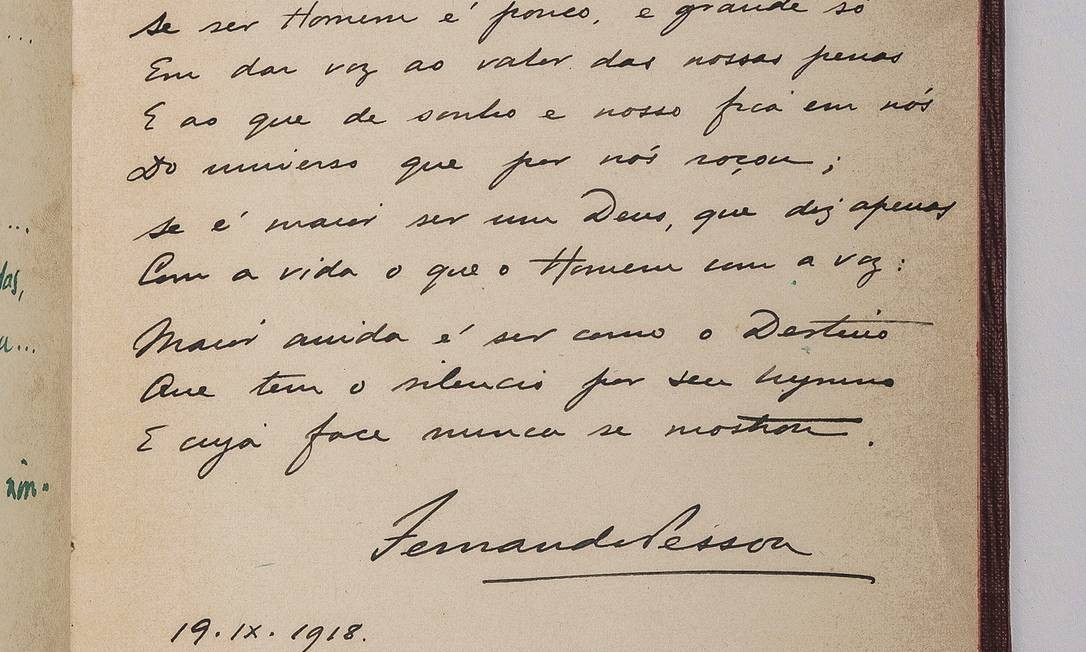 ...
Se ser Homem é pouco, e grande só
Em dar voz ao valor das nossas penas
E ao que de sonho e nosso fica em nós
Do universo que por nós roçou;
Se é maior ser um Deus, que diz apenas
Com a vida o que o Homem com a voz:
Maior ainda é ser como o Destino
Que tem o silencio por seu hymno
E cuja face nunca se mostrou.
Fernando Pessoa
19.IX.1918.
...
das,
u...
ain-